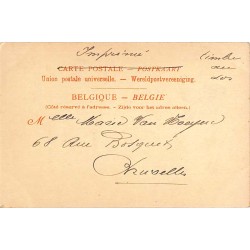 Imprimé
timbre
au
dos
CARTE POSTALE — POSTKAART
Union postale universelle. — Wereldpostvereeniging.
BELGIQUE – BELGIE
(Côté réservé à l'adresse. – Zijde voor het adres alleen.)
Melle Marie Van
68 Rue Bosquet
Bruxelles